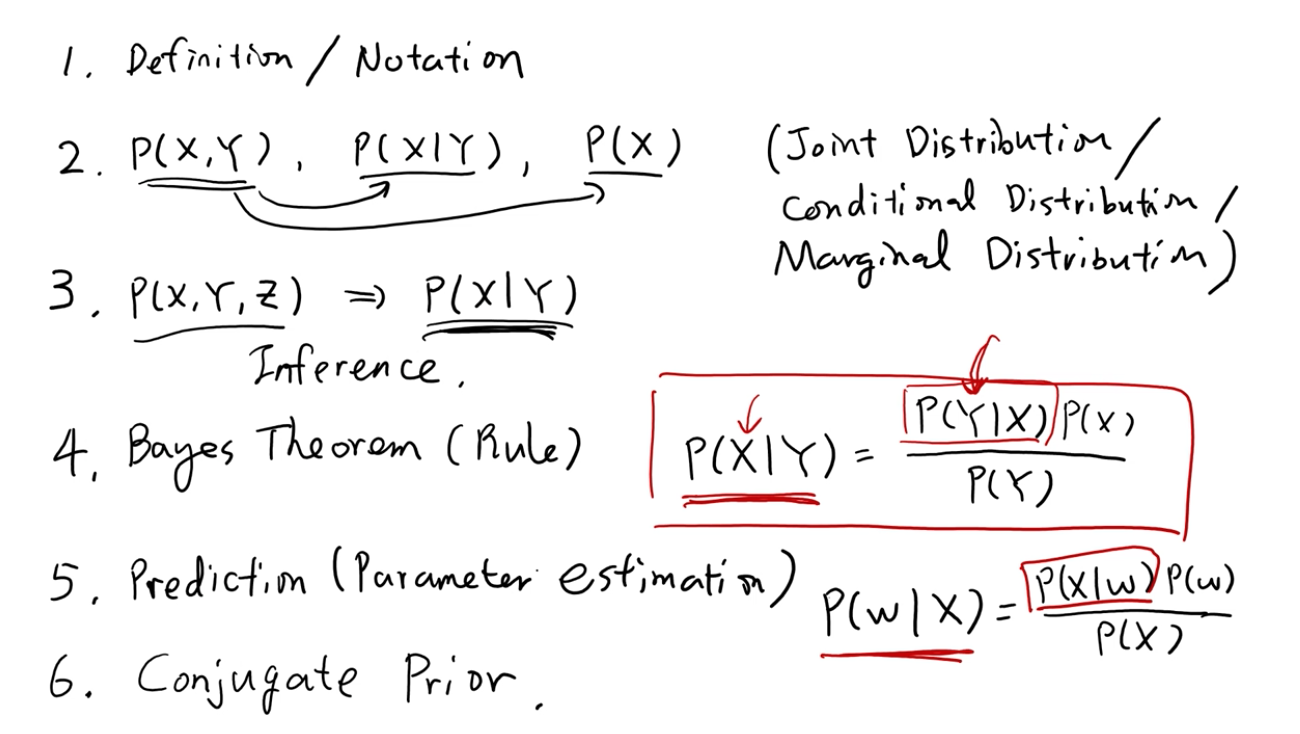 1. Definition / Notation
2. P(X,Y), P(X|Y), P(X) (Joint Distribution /
Conditional Distribution /
Marginal Distribution)
3. P(X,Y,Z) ⇒ P(X|Y)
Inference.
4. Bayes Theorem (Rule) P(X|Y) = P(Y|X)P(X)
P(Y)
5. Prediction (Parameter estimation) P(w|X) = P(X|w)P(w)
P(X)
6. Conjugate Prior.